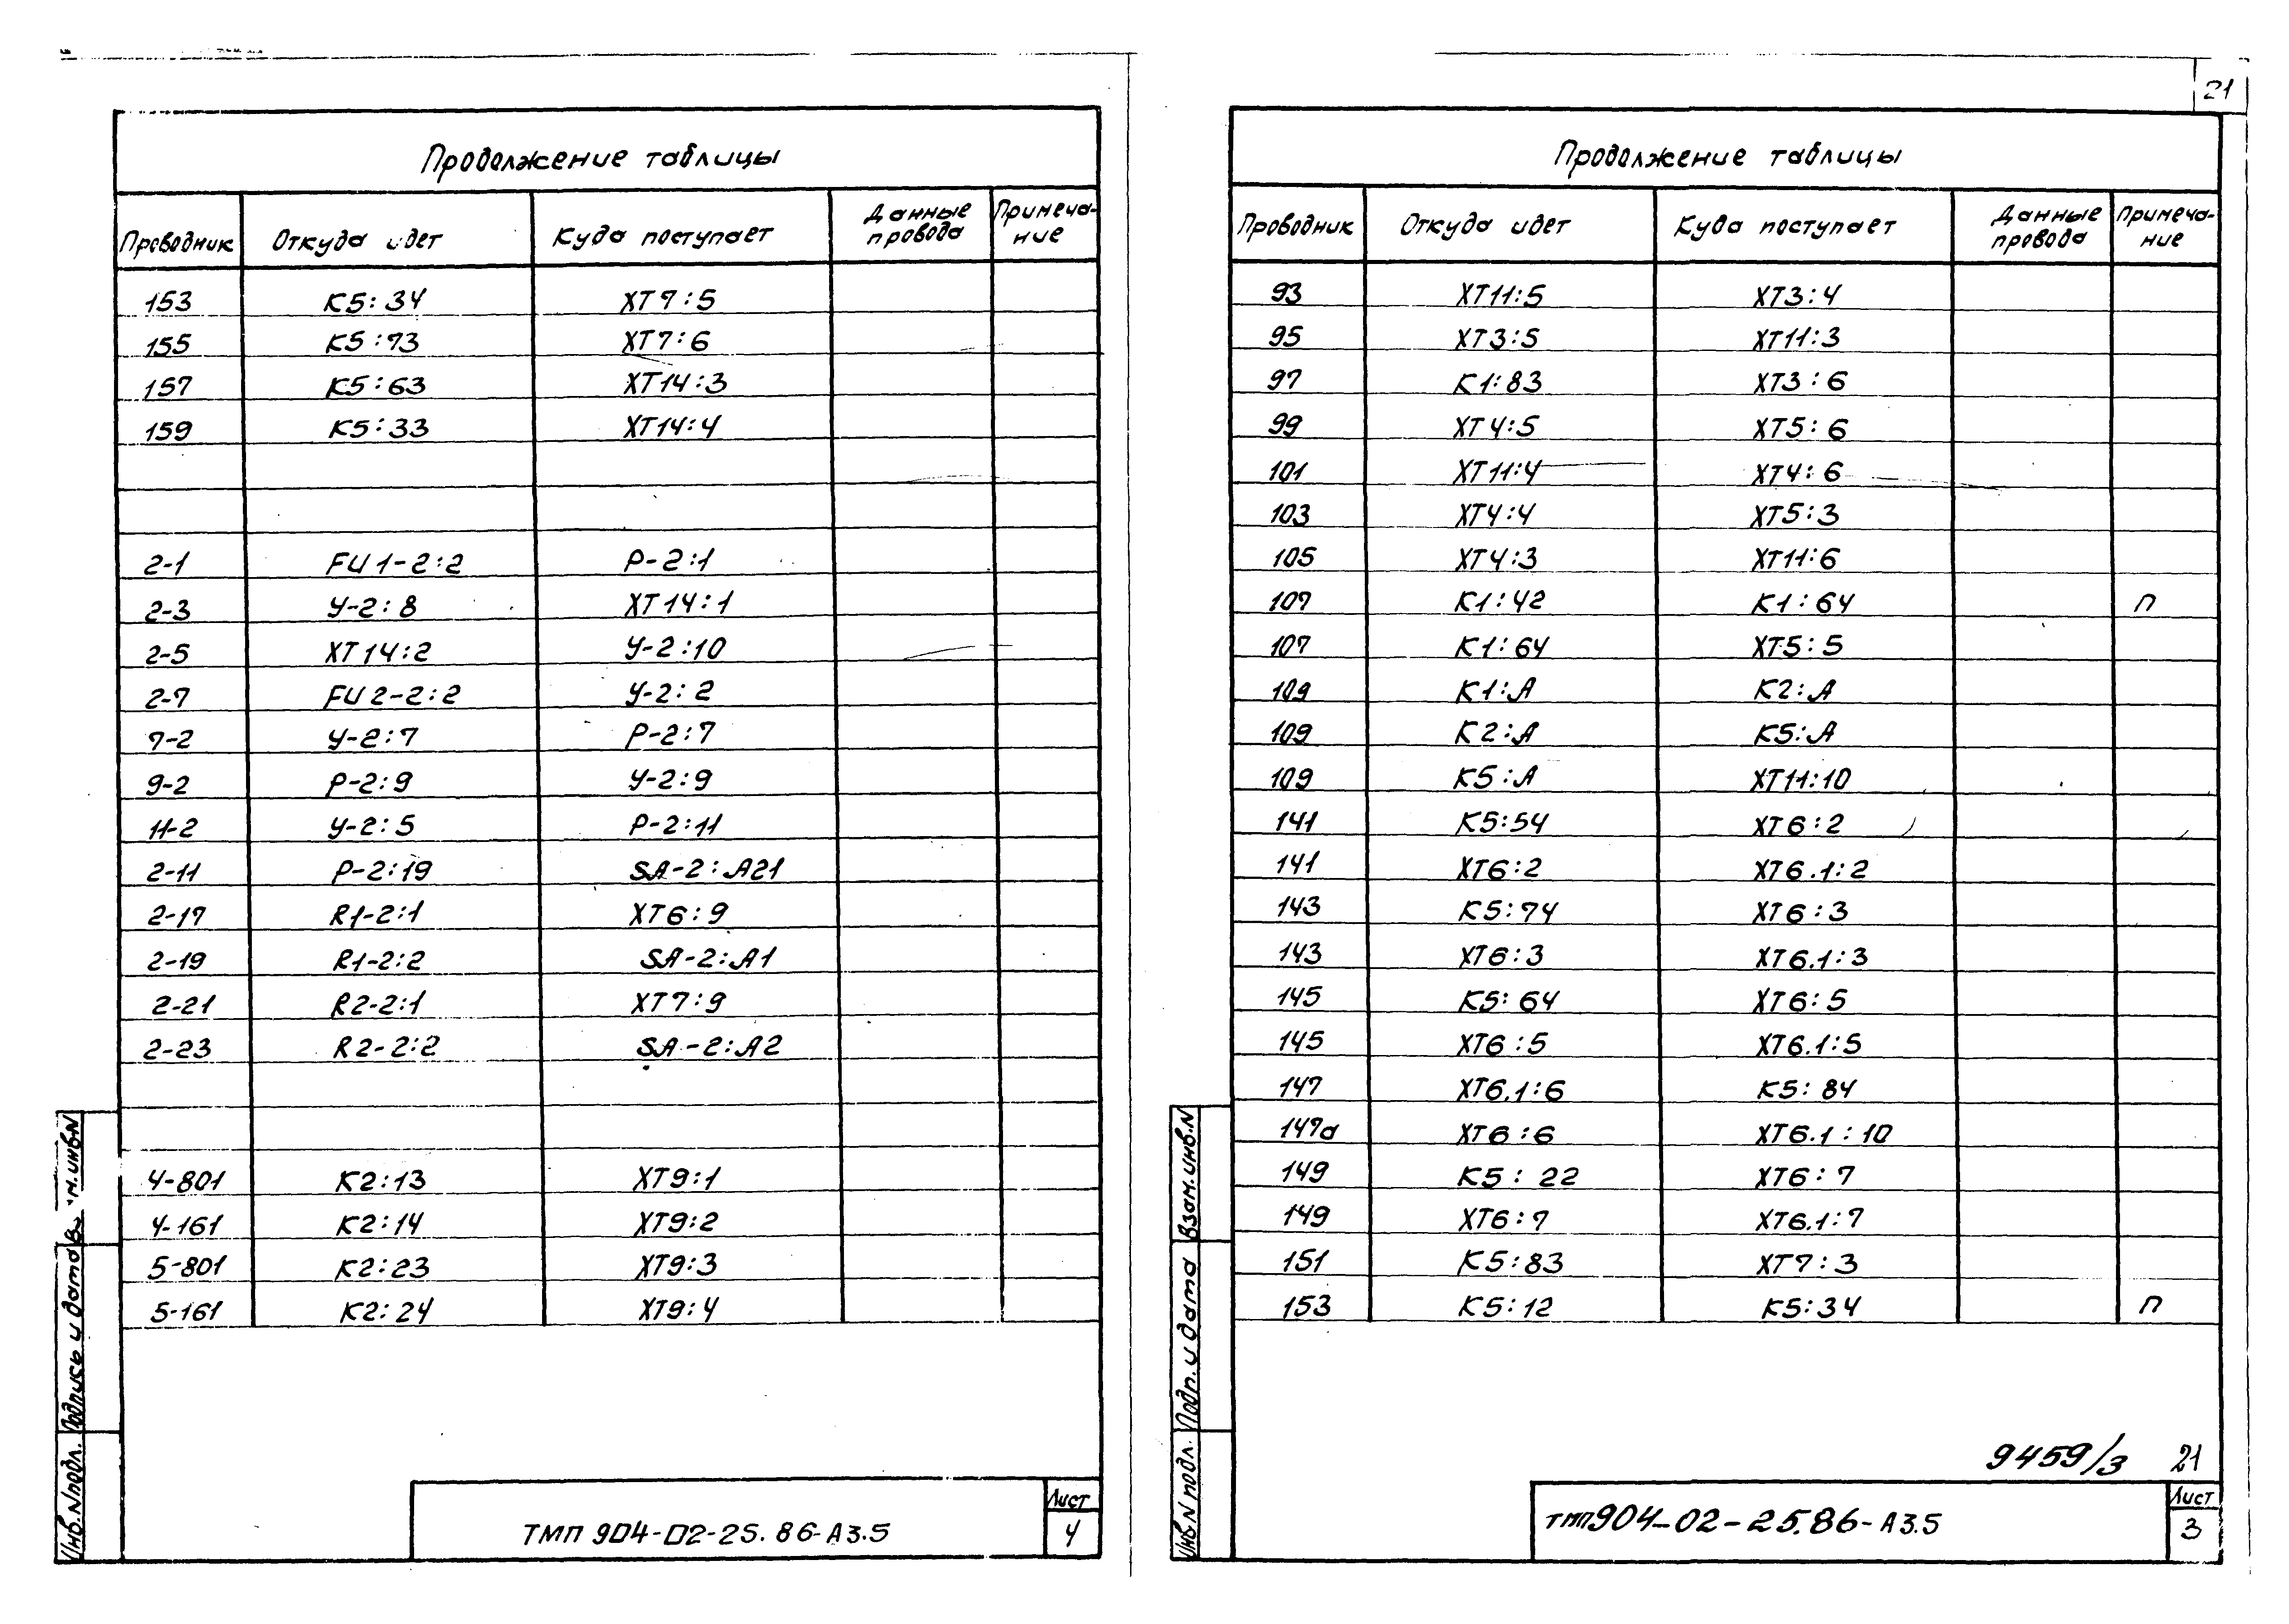 21
Продолжение таблицы
Проводник Откуда идет Куда поступает Данные провода Примеча-ние
153 К5:34 ХТ7:5
155 К5:73 ХТ7:6
157 К5:63 ХТ14:3
159 К5:33 ХТ14:4
2-1 FU1-2:2 Р-2:1
2-3 У-2:8 ХТ14:1
2-5 ХТ14:2 У-2:10
2-7 FU2-2:2 У-2:2
7-2 У-2:7 Р-2:7
9-2 Р-2:9 У-2:9
11-2 У-2:5 Р-2:11
2-11 Р-2:19 SA-2:A21
2-17 R1-2:1 ХТ6:9
2-19 R1-2:2 SA-2:A1
2-21 R2-2:1 ХТ7:9
2-23 R2-2:2 SA-2:A2
4-801 К2:13 ХТ9:1
4-161 К2:14 ХТ9:2
5-801 К2:23 ХТ9:3
5-161 К2:24 ХТ9:4
Инв.N подл. Подпись и дата инв.N
ТМП 904-02-25.86-А3.5
Лист
4
Продолжение таблицы
Проводник Откуда идет Куда поступает Данные провода Примеча-ние
93 ХТ11:5 ХТ3:4
95 ХТ3:5 ХТ11:3
97 К1:83 ХТ3:6
99 ХТ4:5 ХТ5:6
101 ХТ11:4 ХТ4:6
103 ХТ4:4 ХТ5:3
105 ХТ4:3 ХТ11:6
107 К1:42 К1:64 П
107 К1:64 ХТ5:5
109 К1:А К2:А
109 К2:А К5:А
109 К5:А ХТ11:10
141 К5:54 ХТ6:2
141 ХТ6:2 ХТ6.1:2
143 К5:74 ХТ6:3
143 ХТ6:3 ХТ6.1:3
145 К5:64 ХТ6:5
145 ХТ6:5 ХТ6.1:5
147 ХТ6.1:6 К5:84
147а ХТ6:6 ХТ6.1:10
149 К5:22 ХТ6:7
149 ХТ6:7 ХТ6.1:7
151 К5:83 ХТ7:3
153 К5:12 К5:34 П
Инв N подл. Подп. и дата Взам.инв.N
9459/3 21
ТМП904-02-25.86-А3.5
Лист
3